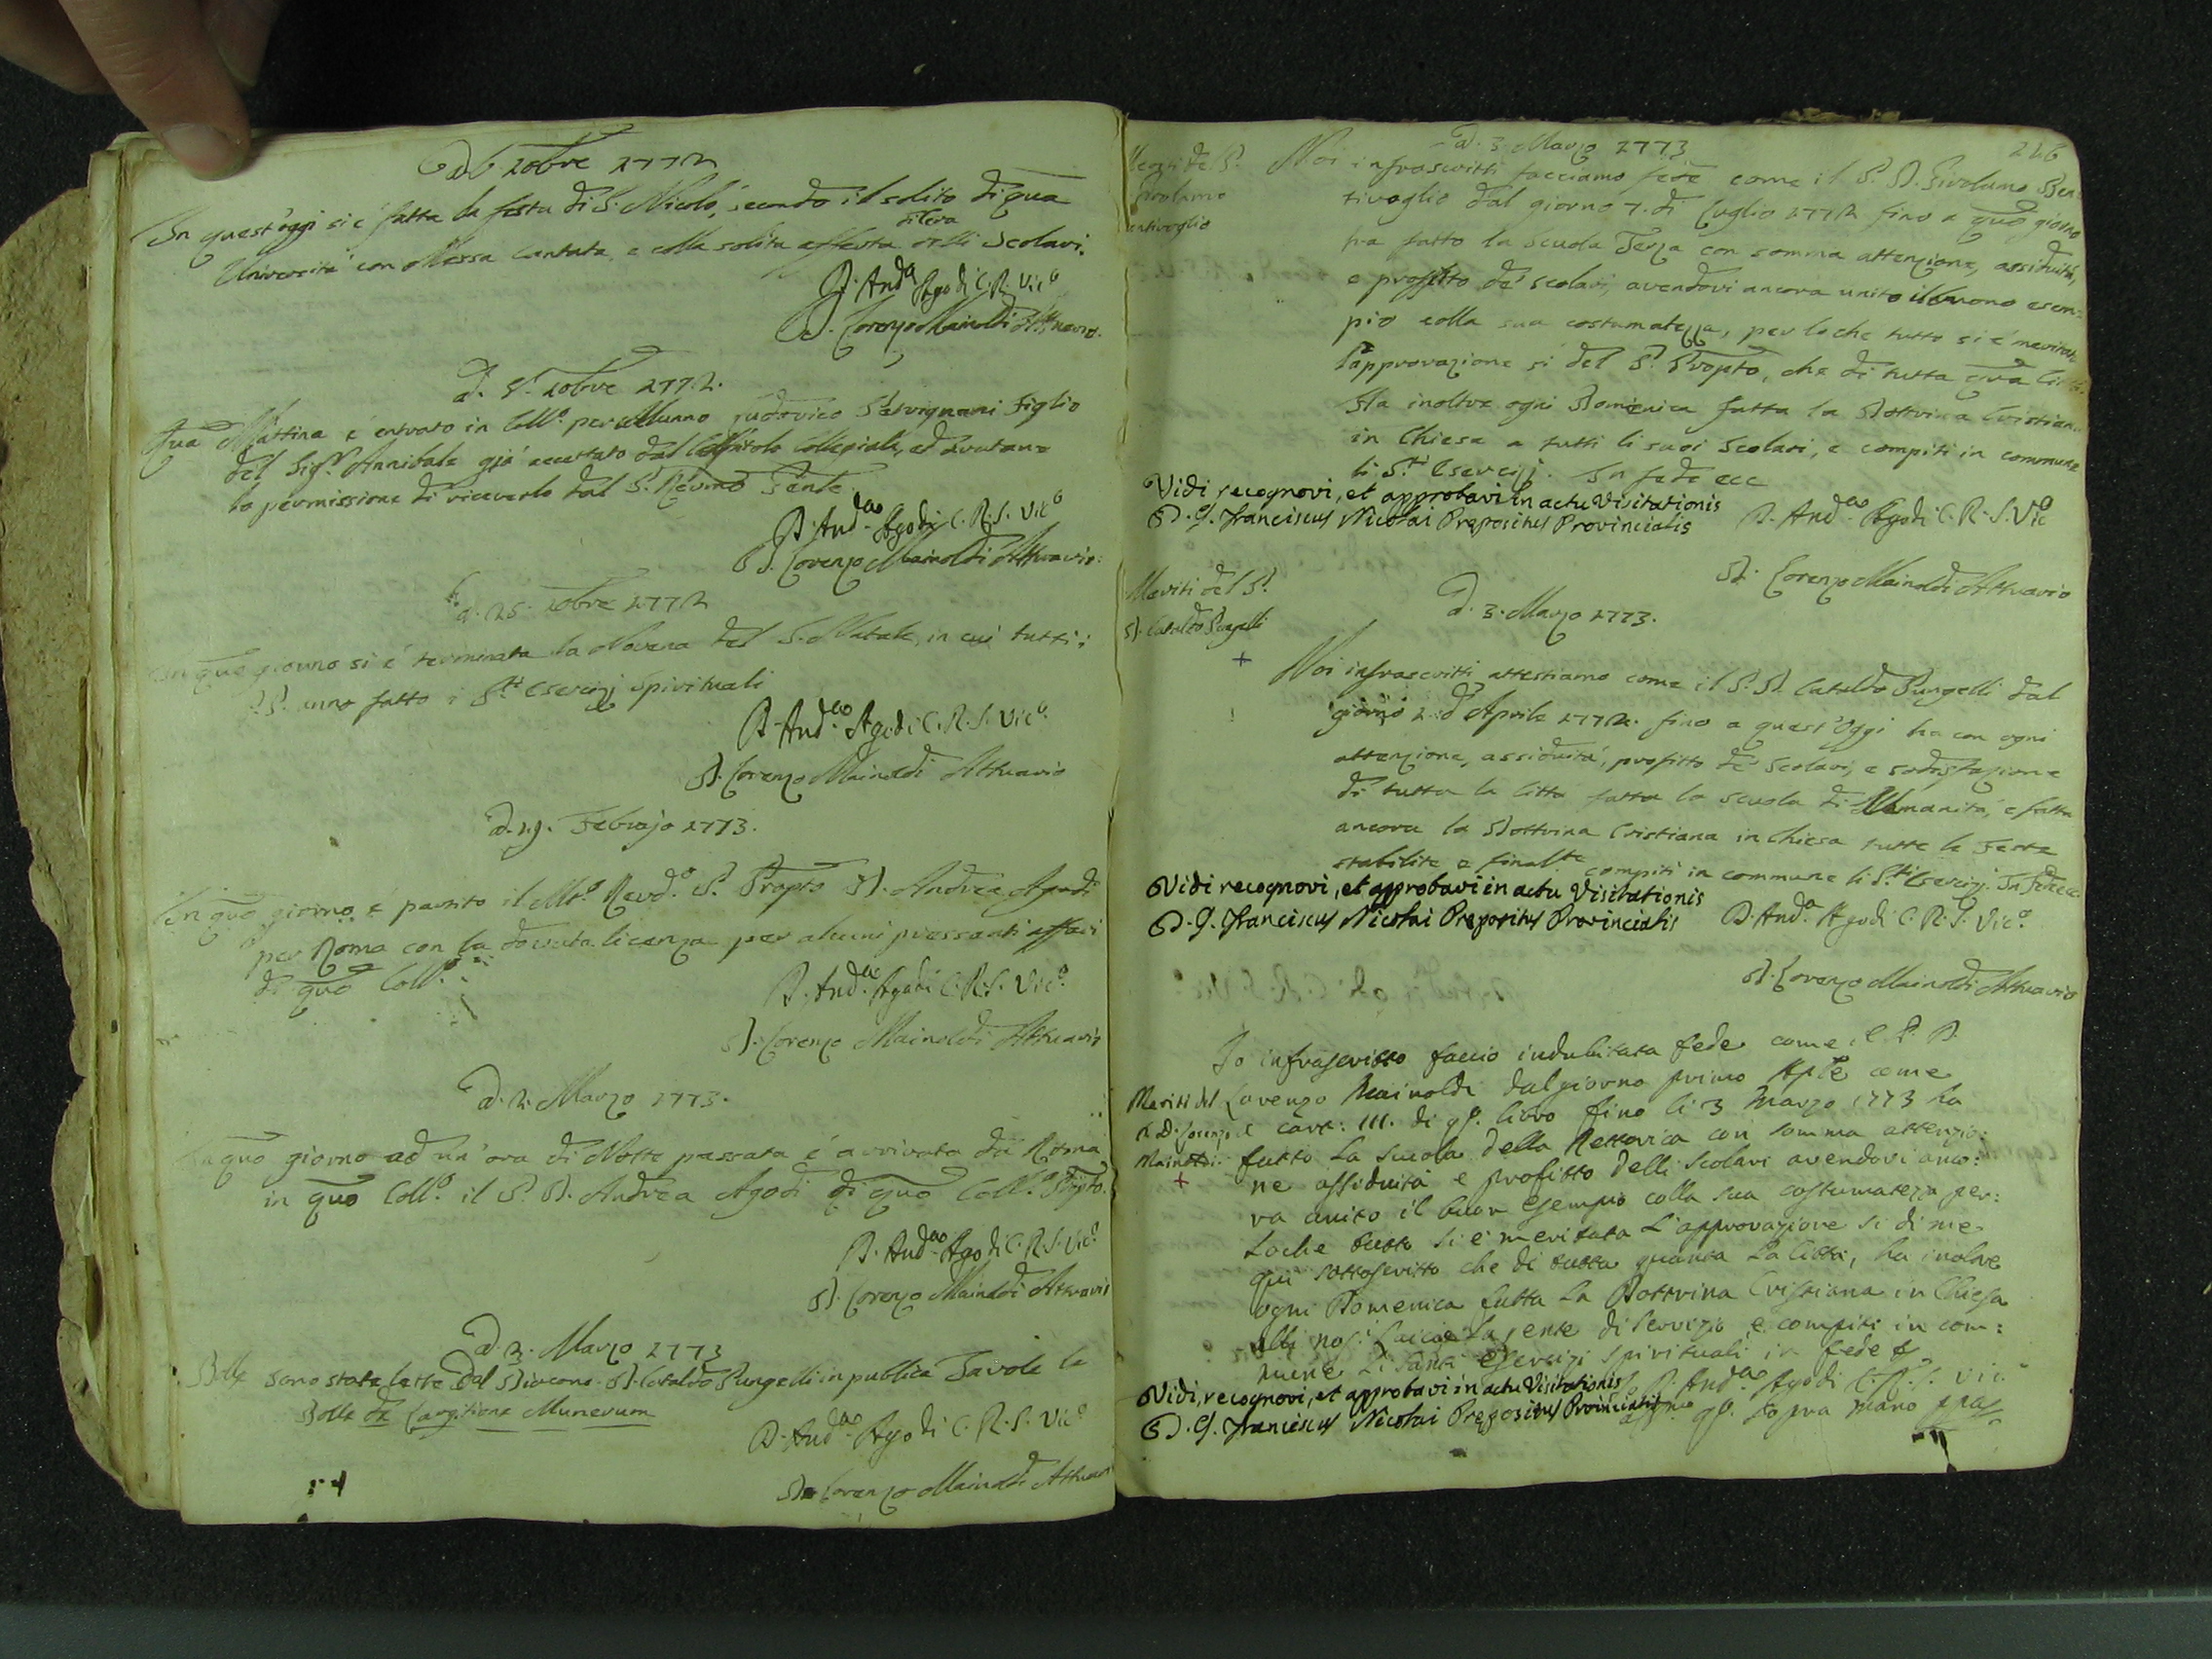 A d 6 10bre 1772
In quest'oggi si è fatta la festa di S. Nicolò, secondo il solito di qua
Università con Messa Cantata, e colla solita offerta di Cera delli Scolari.
D. And.a Agodi C.R. Vic.o
D. Lorenzo Mainoldi Attuario.
A. 9. 10bre 1772.
Qua Mattina e entrato in Coll.o per Alunno Ludovico Figlio
del Sig.r Annibale già accettato dal Capitolo Collegiale, ed avutane
la permissione di riceverlo dal P. Revmo Pente.
D. And.ao Agodi C.R.S. Vic.o
D. Lorenzo Mainoldi Attuario.
A. 25. 10bre 1772
In quo giorno si è terminata la Novena del S. Natale, in cui tutti i
PP. anno fatto i S.ti Esercizj Spirituali
D. And.ao Agodi C.R.S. Vic.o
D. Lorenzo Mainoldi Attuario
A. 19. Febrajo 1773.
In quo giorno è partito il M.o Revd.o P. Propto D. Andrea Agodi
per Roma con la dovuta licenza per alcuni pressanti affari
di quo Coll.o
D. And.ao Agodi C.R.S. Vic.o
D. Lorenzo Mainoldi Attuario
A. 2. Marzo 1773.
In quo giorno ad un'ora di Notte passata è arrivato da Roma
in quo Coll.o il P. D. Andrea Agodi di quo Coll.o Ppto.
D. And.ao Agodi C.R.S. Vic.o
D. Lorenzo Mainoldi Attuario
A. 3. Marzo 1773
Bolle Sono state lette dal Diacono D. Cataldo Pungelli in publica Tavola le
Bolle de Largitione Munerum
D. And.ao Agodi C.R.S. Vic.o
D. Lorenzo Mainoldi Attuario
226
A. 3. Marzo 1773
Meriti del P.
Girolamo
Bentivoglio
Noi infrascritti facciamo fede come il P. D. Girolamo Ben=
tivoglio dal giorno 7. di Luglio 1772 fino a quo giorno
ha fatto la Scuola Terza con somma attenzione, assiduità,
e profitto de' scolari, avendovi ancora unito il buono esem=
pio colla sua costumatezza, per loche tutto si è meritato
l'approvazione si del P. Propto, che di tutta qua Città.
Ha inoltre ogni Domenica fatta la Dottrina Cristiana
in Chiesa a tutti li suoi Scolari, e compiti in commune
li S.ti Esercizj. In fede ecc
Vidi recognovi, et approbavi in actu Visitationis
D. G. Franciscus Nicolai Prepositus Provincialis
D. And.ao Agodi C.R.S. Vic.o
D. Lorenzo Mainoldi Attuario
Meriti del P.
D. Cataldo Pungelli
+
A. 3. Marzo 1773.
Noi infrascritti attestiamo come il P. D. Cataldo Pungelli dal
giorno 2. d'Aprile 1772. fino a quest'oggi ha con ogni
attenzione, assiduità, profitto de' Scolari, e sodisfazione
di tutta la Città fatta la scuola di Umanità, e fatta
ancora la Dottrina Cristiana in Chiesa tutte le Feste
stabilite e final.te compiti in commune li S.ti Esercizj. In fede ecc.
Vidi recognovi, et approbavi in actu Visitationis
D. G. Franciscus Nicolai Prepositus Provincialis
D. And.a Agodi C.R.S. Vic.o
D. Lorenzo Mainoldi Attuario
Meriti del
P. D. Lorenzo
Mainoldi
+
Io infrascritto faccio indubitata fede come il P. D.
Lorenzo Mainoldi dal giorno primo Aple come
a cart: 111. di qo. libro fino li 3 Marzo 1773 ha
fatto La Scuola della Rettorica con somma attenzio:
ne assiduità e profitto delli Scolari avendovi anco:
ra unito il buon esempio colla sua costumatezza per:
loche tutto si è meritata L'approvazione si di me
qui sottoscritto che di tutta quanta La Città, ha inoltre
ogni Domenica fatta La Dottrina Cristiana in Chiesa
alli nos.i Laici e La gente di Servizio e compiti in com:
mune Li Santi Esercizi Spirituali in fede
D. And.ao Agodi C.R.S. Vic.o
affmo qo. sopra mano ppa
Vidi, recognovi, et approbavi in actu Visitationis
D. G. Franciscus Nicolai Prepositus Provincialis